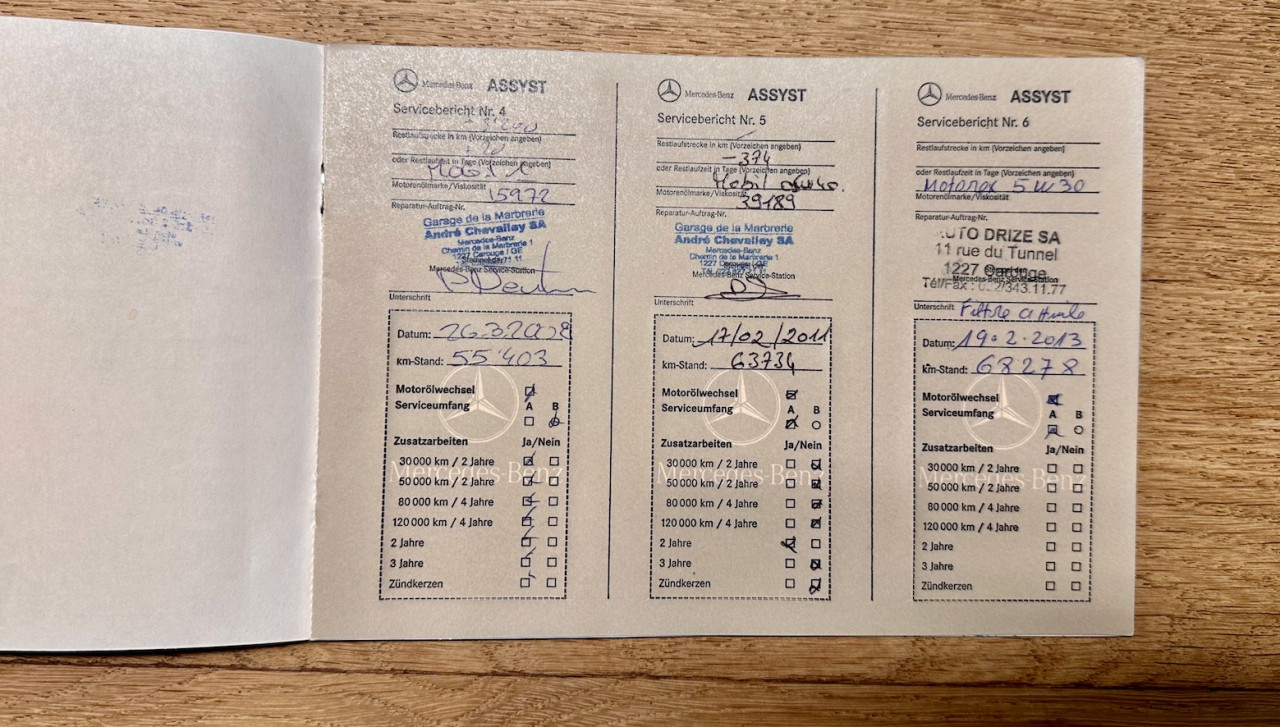 Mercedes-Benz ASSYST
Servicebericht Nr. 4
Restlaufstrecke in km (Vorzeichen angeben)
oder Restlaufzeit in Tage (Vorzeichen angeben)
Mobil 1
Motorenölmarke/Viskosität
15972
Reparatur-Auftrag-Nr.
Garage de la Marbrerie
André Chevalley SA
Mercedes-Benz
Chemin de la Marbrerie 1
1227 Carouge / GE
Mercedes-Benz Service-Station
Unterschrift
Datum:
km-Stand: 55'403
Motorölwechsel
Serviceumfang A B
Zusatzarbeiten Ja/Nein
30 000 km / 2 Jahre
50 000 km / 2 Jahre
80 000 km / 4 Jahre
120 000 km / 4 Jahre
2 Jahre
3 Jahre
Zündkerzen
Mercedes-Benz
Mercedes-Benz ASSYST
Servicebericht Nr. 5
Restlaufstrecke in km (Vorzeichen angeben)
-374
oder Restlaufzeit in Tage (Vorzeichen angeben)
Mobil
Motorenölmarke/Viskosität
39189
Reparatur-Auftrag-Nr.
Garage de la Marbrerie
André Chevalley SA
Mercedes-Benz
Chemin de la Marbrerie 1
1227 Carouge / GE
Mercedes-Benz Service-Station
Unterschrift
Datum: 17/02/2011
km-Stand: 63734
Motorölwechsel
Serviceumfang A B
Zusatzarbeiten Ja/Nein
30 000 km / 2 Jahre
50 000 km / 2 Jahre
80 000 km / 4 Jahre
120 000 km / 4 Jahre
2 Jahre
3 Jahre
Zündkerzen
Mercedes-Benz
Mercedes-Benz ASSYST
Servicebericht Nr. 6
Restlaufstrecke in km (Vorzeichen angeben)
oder Restlaufzeit in Tage (Vorzeichen angeben)
Motorex 5W30
Motorenölmarke/Viskosität
Reparatur-Auftrag-Nr.
AUTO DRIZE SA
11 rue du Tunnel
1227 Carouge
Mercedes-Benz Service-Station
Tél/Fax : 022/343.11.77
Unterschrift Filtre a Huile
Datum: 19.2.2013
km-Stand: 68278
Motorölwechsel
Serviceumfang A B
Zusatzarbeiten Ja/Nein
30 000 km / 2 Jahre
50 000 km / 2 Jahre
80 000 km / 4 Jahre
120 000 km / 4 Jahre
2 Jahre
3 Jahre
Zündkerzen
Mercedes-Benz